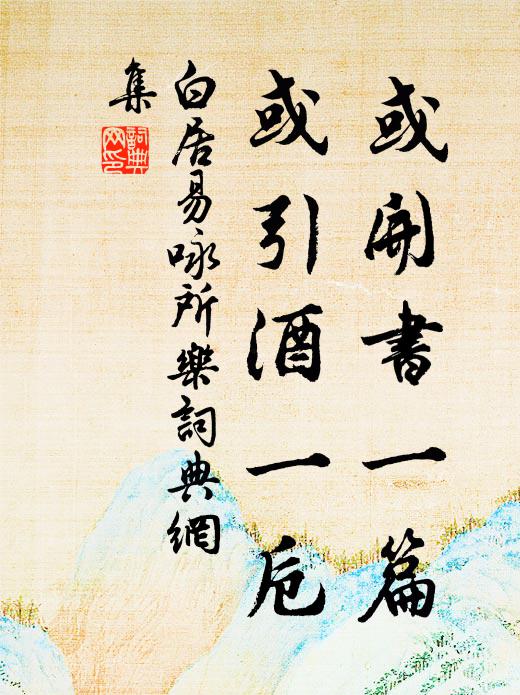 或開書一篇
或引酒一卮
白居易咏所樂詞典網
集
詞典
网印